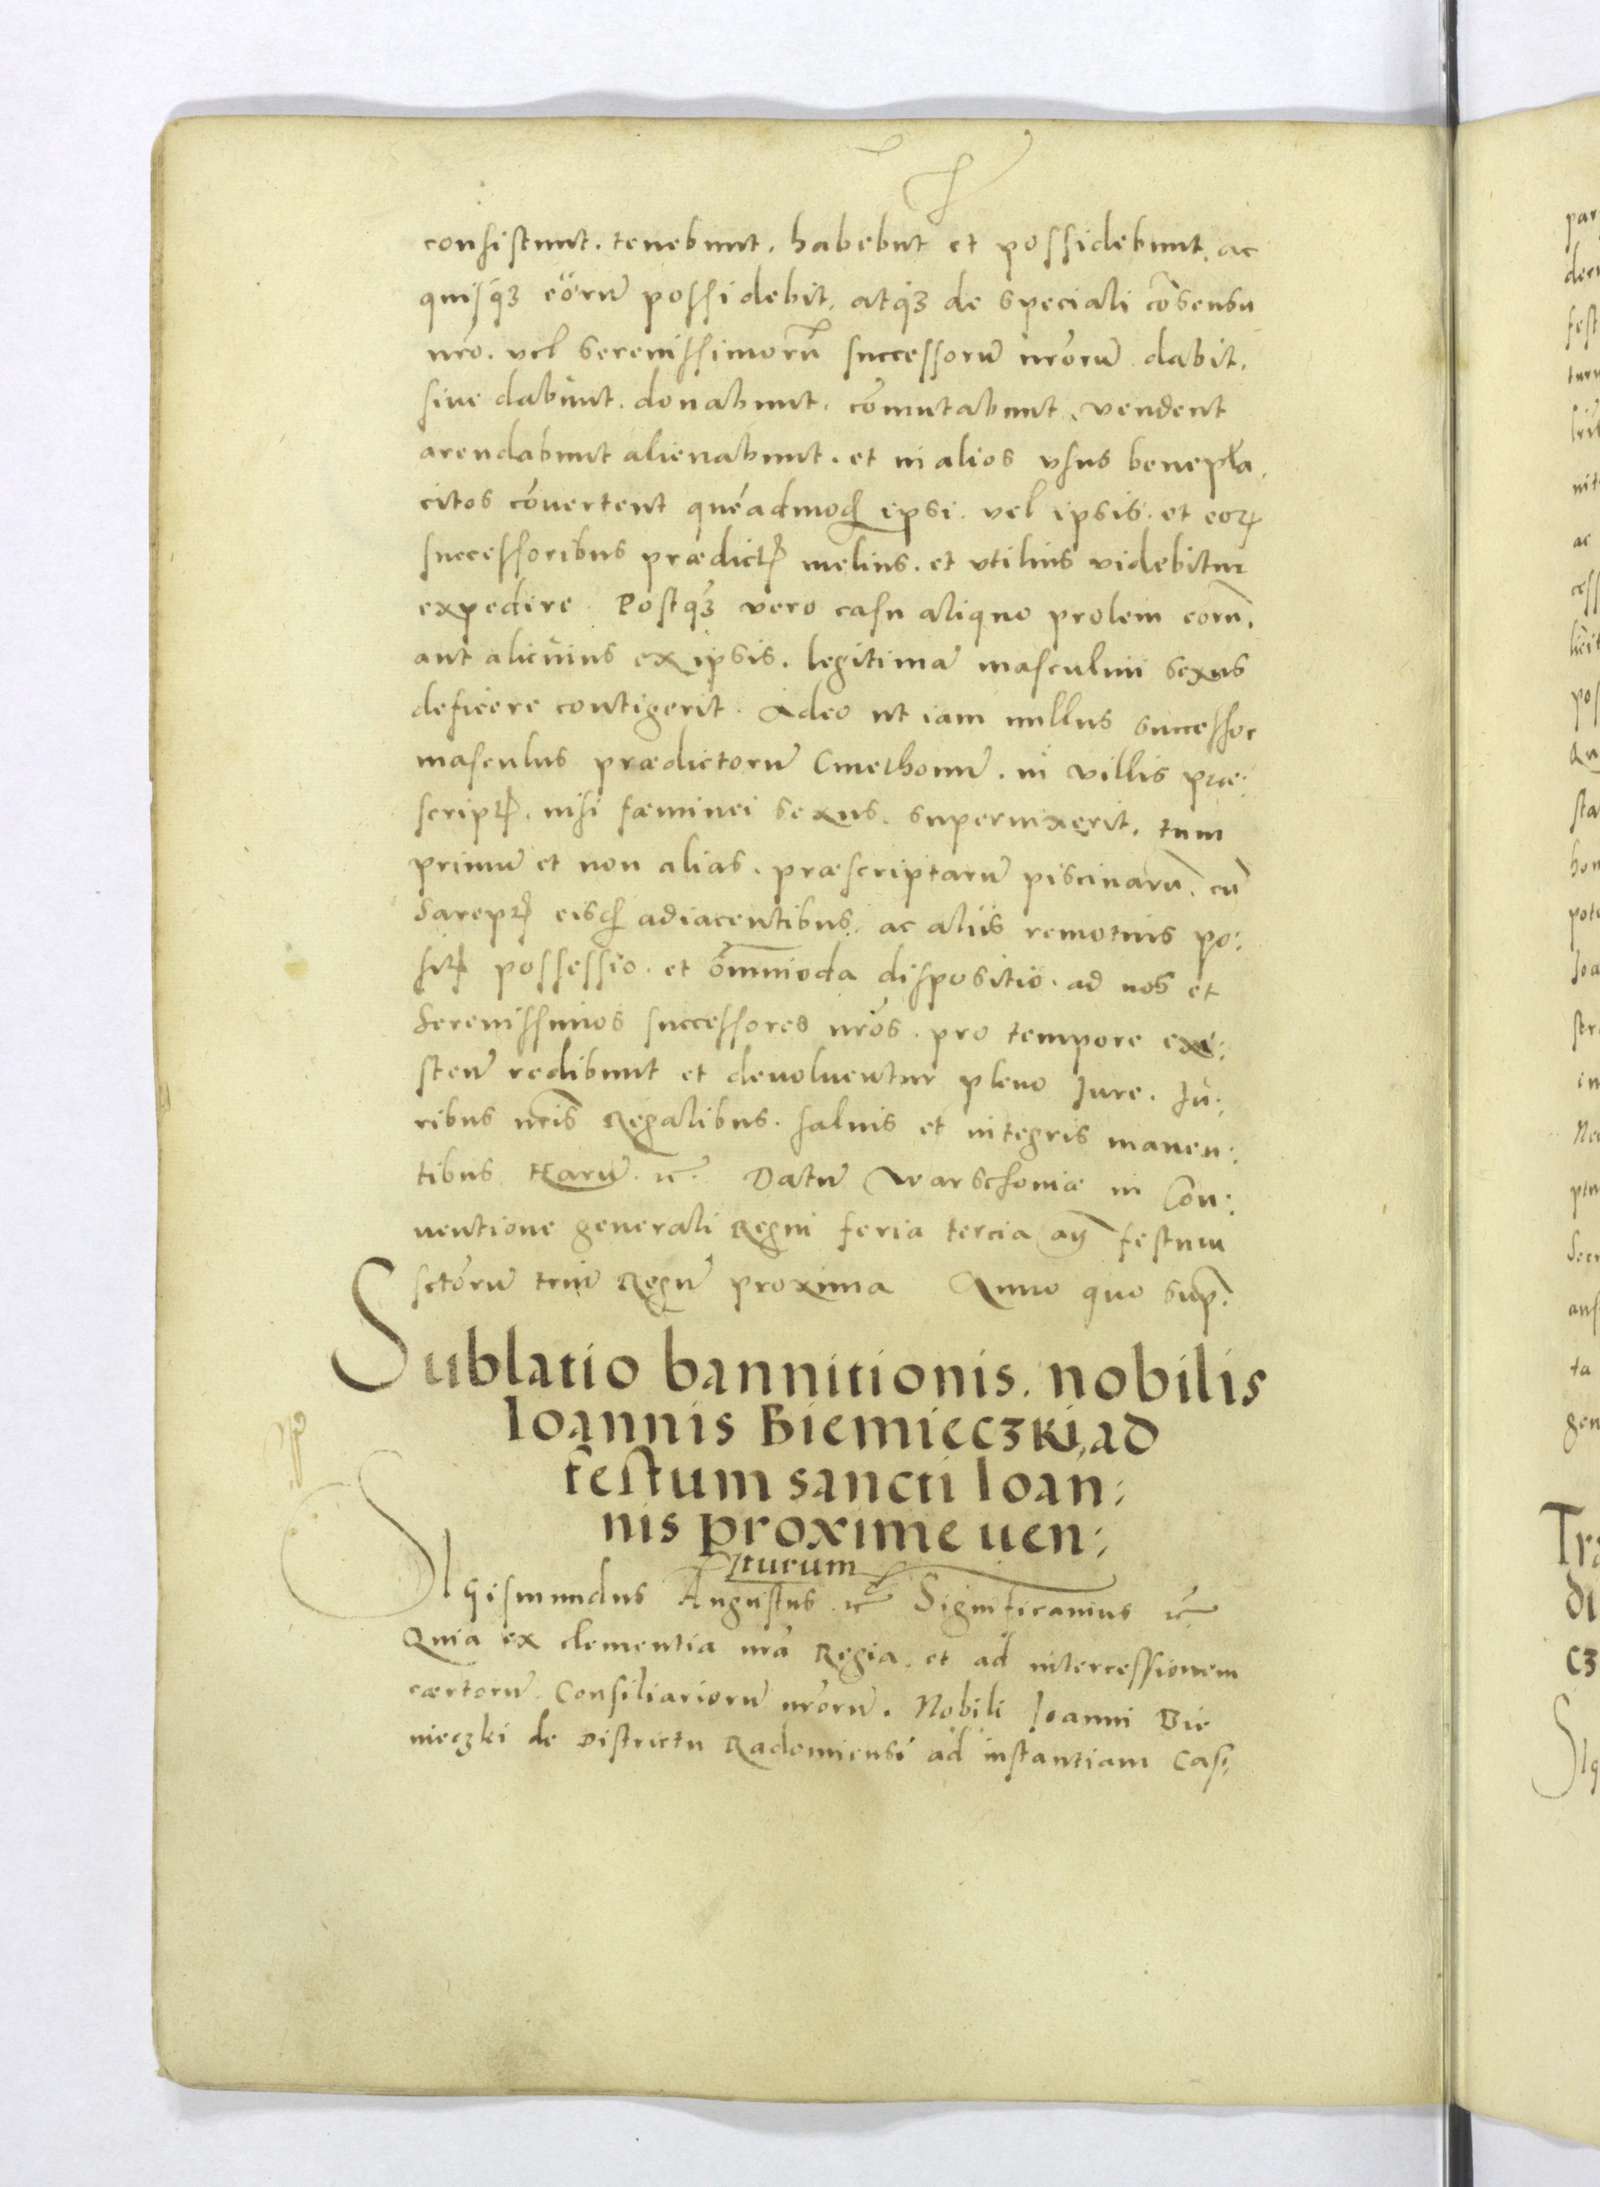 consistunt. tenebunt. habebūt et possidebunt. ac
quisqꝫ eorū possidebit. atqꝫ de speciali cōsensu
nrō. vel serenissimorū successorū nrōrū dabit.
siue dabunt. donabunt. cōmutabunt. vendent
arendabunt alienabunt. et in alios vsus benepla
citos cōuertent quēadmod ipsi. vel ipsis. et eoꝝ
successoribus prædictꝭ melius. et vtilius videbitur
expedire. Postqꝫ vero casu aliquo prolem eorū.
aut alicuius ex ipsis. legitimā masculini sexus
deficere contigerit. Adeo ut iam nullus successor
masculus prædictorū Cmethonū. in villis præ:
scriptꝭ. nisi fæminei sexus. superuixerit. tum
primū et non alias. præscriptarū piscinarū. cū
Sareptꝭ eisd adiacentibus. ac aliis remotius po:
sitꝭ possessio. et om̄nioda dispositio. ad nos et
Serenissimos successores nrōs. pro tempore exi:
sten̄ redibunt et deuoluentur pleno Iure. Iu:
ribus nrīs Regalibus. saluis et integris manen:
tibus. Harū. ꝛc. Datū Warschouiæ in Con:
uentione generali Regni feria tercia an̄ festum
sctōrū triū Regū proxima Anno quo sup.
Sublatio bannitionis. nobilis
Ioannis Biemieczki, ad
festum sancti Ioan:
nis proxime uen:
turum
SIgismundus Augustus ꝛc Significamus ꝛc
Quia ex clementia nrā Regia. et ad intercessionem
cærtorū. Consiliariorū nrōrū. Nobili Ioanni Bie
mieczki de Districtu Radomiensi ad instantiam Cas: